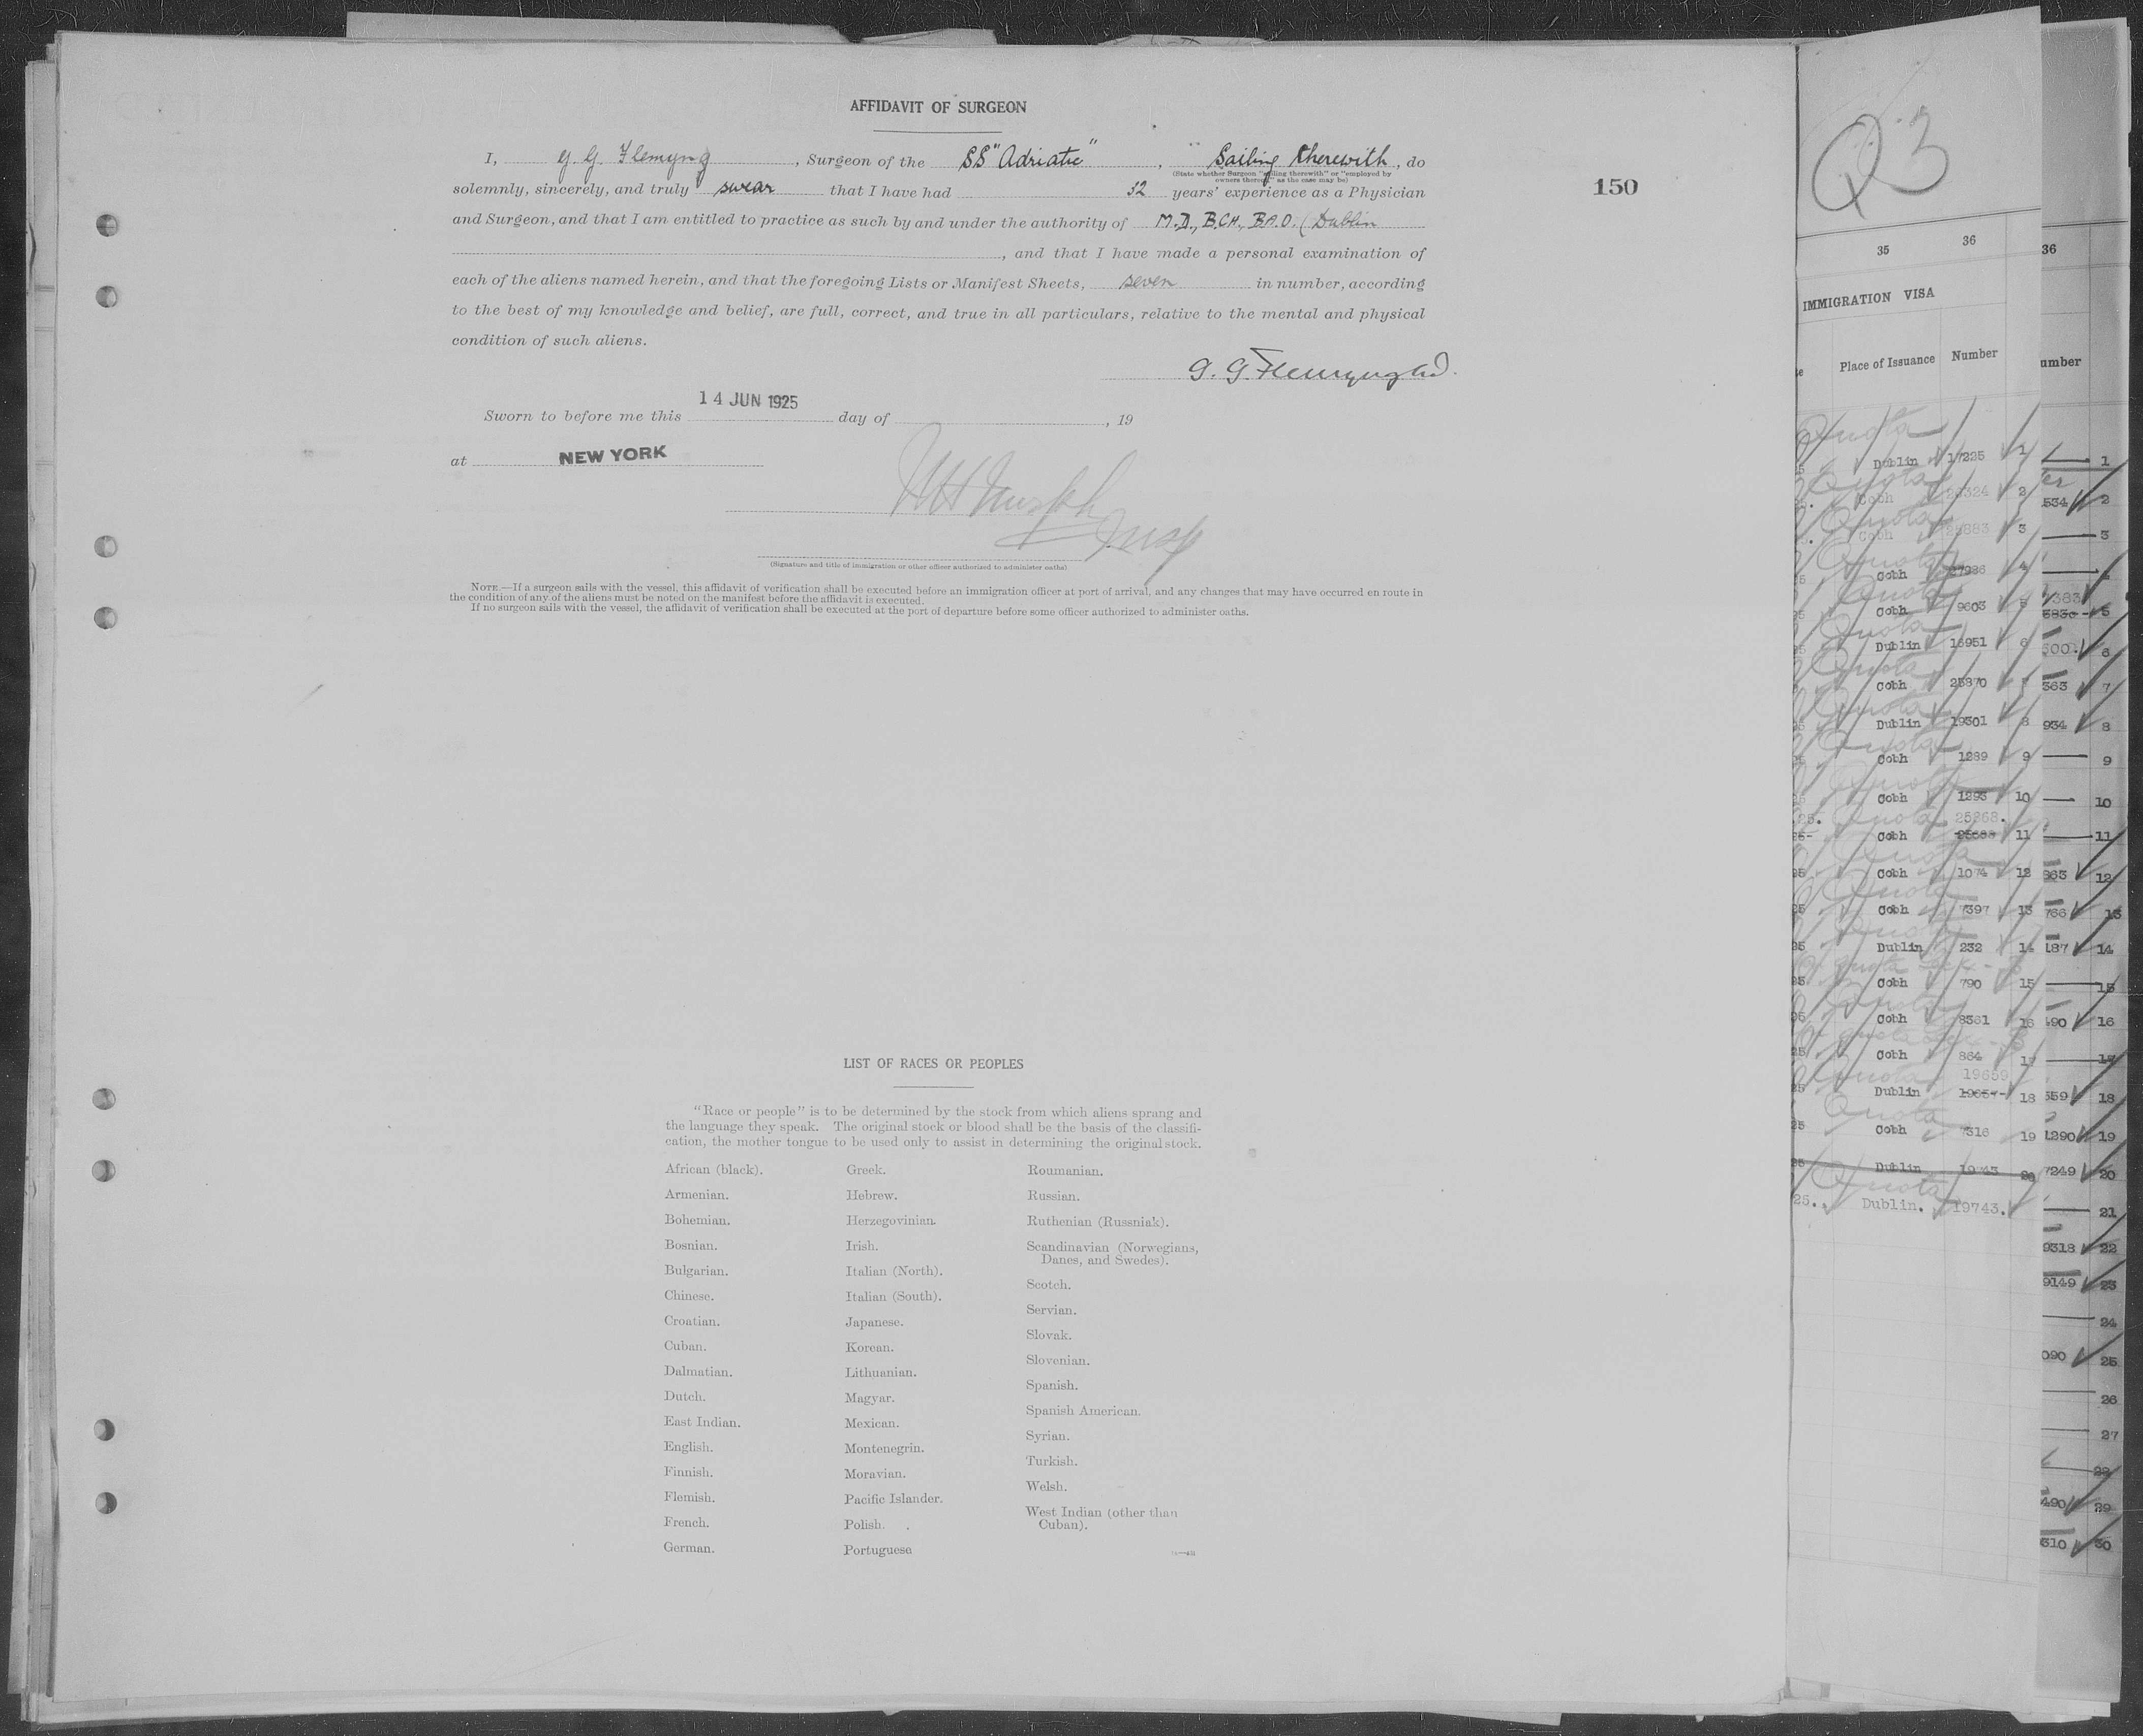 AFFIDAVIT OF SURGEON
I, G. G. Flemyng, Surgeon of the SS "Adriatic", Sailing therewith, do
(State whether Surgeon "sailing therewith" or "employed by
owners thereof" as the case may be)
solemnly, sincerely, and truly swear that I have had 32 years' experience as a Physician
150
and Surgeon, and that I am entitled to practice as such by and under the authority of M.D., B.CH., B.A.O. (Dublin
, and that I have made a personal examination of
each of the aliens named herein, and that the foregoing Lists or Manifest Sheets, seven in number, according
to the best of my knowledge and belief, are full, correct, and true in all particulars, relative to the mental and physical
condition of such aliens.
G. G. Flemyng
Sworn to before me this 14 JUN 1925 day of , 19
at NEW YORK
Insp
(Signature and title of immigration or other officer authorized to administer oaths)
NOTE.—If a surgeon sails with the vessel, this affidavit of verification shall be executed before an immigration officer at port of arrival, and any changes that may have occurred en route in
the condition of any of the aliens must be noted on the manifest before the affidavit is executed.
If no surgeon sails with the vessel, the affidavit of verification shall be executed at the port of departure before some officer authorized to administer oaths.
LIST OF RACES OR PEOPLES
"Race or people" is to be determined by the stock from which aliens sprang and
the language they speak. The original stock or blood shall be the basis of the classifi-
cation, the mother tongue to be used only to assist in determining the original stock.
African (black).
Armenian.
Bohemian.
Bosnian.
Bulgarian.
Chinese.
Croatian.
Cuban.
Dalmatian.
Dutch.
East Indian.
English.
Finnish.
Flemish.
French.
German.
Greek.
Hebrew.
Herzegovinian.
Irish.
Italian (North).
Italian (South).
Japanese.
Korean.
Lithuanian.
Magyar.
Mexican.
Montenegrin.
Moravian.
Pacific Islander.
Polish.
Portuguese
Roumanian.
Russian.
Ruthenian (Russniak).
Scandinavian (Norwegians,
Danes, and Swedes).
Scotch.
Servian.
Slovak.
Slovenian.
Spanish.
Spanish American.
Syrian.
Turkish.
Welsh.
West Indian (other than
Cuban).
Q3
35 36
IMMIGRATION VISA
Place of Issuance Number
Quota
Dublin 17225
Quota
Cobh 2
Quota
Cobh 3
Quota
Cobh 4
Quota
Cobh 9603 5
Quota
Dublin 16951 6
Quota
Cobh 25870 7
Quota
Dublin 19301 8
Quota
Cobh 1289 9
Quota
Cobh 1293 10
Quota 25868.
Cobh 11
Quota
Cobh 1074 12
Quota
Cobh 7397 13
Quota
Dublin 232 14
Quota
Cobh 790 15
Quota
Cobh 8361 16
Quota
Cobh 864 17
Quota 19659
Dublin 19657 18
Quota
Cobh 7316 19
Dublin 19743 20
Quota
25. Dublin. 19743.
36
umber
1
534 2
3
4
383
5
300. 6
363 7
934 8
9
10
11
363 12
766 13
187 14
15
490 16
17
559 18
1290 19
7249 20
21
9318 22
9149 23
24
090 25
26
27
28
490 29
310 30